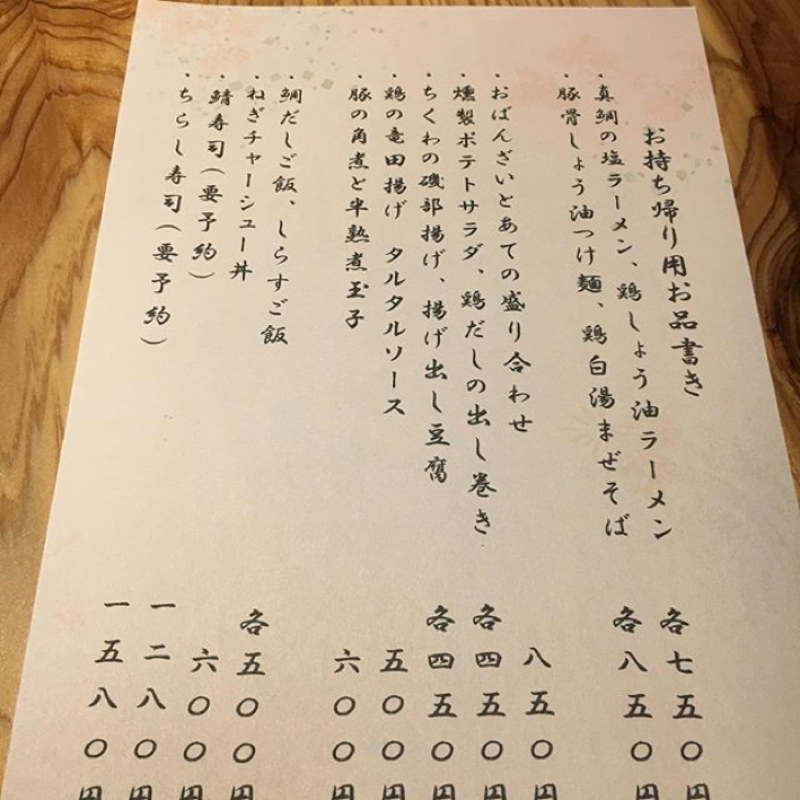 お持ち帰り用お品書き
・真鯛の塩ラーメン、鶏しょう油ラーメン 各七五〇円
・豚骨しょう油つけ麺、鶏白湯まぜそば 各八五〇円
・おばんざいとあての盛り合わせ 八五〇円
・燻製ポテトサラダ、鶏だしの出し巻き 各四五〇円
・ちくわの磯部揚げ、揚げ出し豆腐 各四五〇円
・鶏の竜田揚げ タルタルソース 五〇〇円
・豚の角煮と半熟煮玉子 六〇〇円
・鯛だしご飯、しらすご飯 各五〇〇円
・ねぎチャーシュー丼 六〇〇円
・鯖寿司(要予約) 一二八〇円
・ちらし寿司(要予約) 一五八〇円